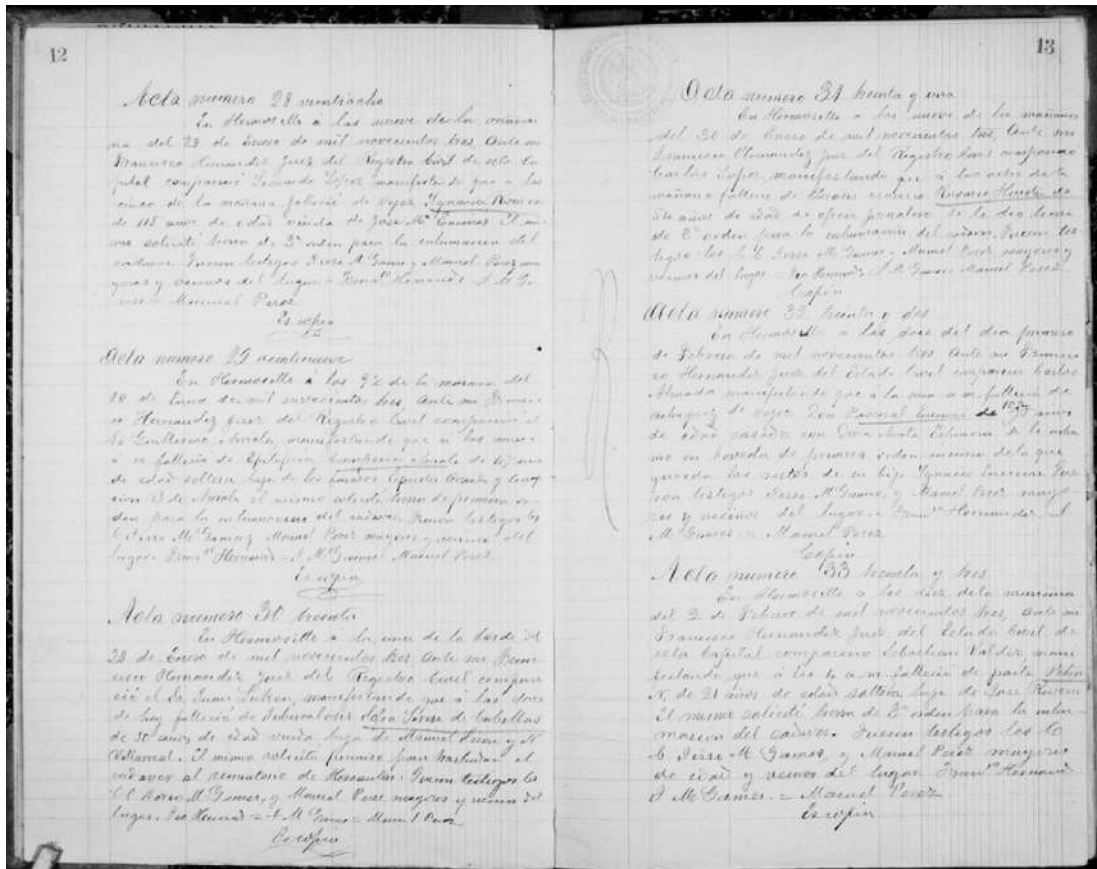 12
Acta numero 28 veintiocho
En Hermosillo a las nueve de la maña-
na del 28 de Enero de mil novecientos tres, ante mi
Francisco Hernandez Juez del Registro Civil de esta Ca-
pital compareció Leonardo Lopez manifestando que a las
cinco de la mañana falleció de vejez Ignacia
de 115 años de edad viuda de José Mª El mis-
mo solicitó tierra de 3ª orden para la inhumacion del
cadaver. Fueron testigos A. Gamez y Manuel Perez ma-
yores y vecinos del lugar. Hernandz
Manuel Perez
Es copia
Acta numero 29 veintinueve
En Hermosillo á las 9½ de la mañana del
28 de Enero de mil novecientos tres ante mi Francis-
co Hernandez Juez del Registro Civil compareció el
Guillermo Arriola, manifestando que á las
falleció de Epilepsia Arriola de 47 años
de edad soltera hija de los finados Arriola y
de Arriola el mismo solicitó tierra de primera or-
den para la inhumacion del cadaver. Fueron testigos los
Mc Gamez y Manuel Perez mayores y vecinos del
lugar. Hernand = J. M. Gamez Manuel Perez
Es copia
Acta numero 30 treinta
En Hermosillo a la una de la tarde del
28 de Enero de mil novecientos tres, ante mi Fran-
cisco Hernandez Juez del Registro Civil compare-
ció el Sr. Juan manifestando que á las doce
de hoy falleció de Tuberculosis de Cubillas
de 50 años de edad viuda hija de Manuel y
Villareal. El mismo solicitó permiso para trasladar el
cadaver al Fueron testigos los
C. C. M. Gamez, y Manuel Perez mayores y vecinos del
lugar. Hernand = J. M. Gamez = Manuel Perez
Es copia
13
Acta numero 31 treinta y una
En Hermosillo a las nueve de la mañana
del 30 de Enero de mil novecientos tres, ante mi
Francisco Hernandez juez del Registro Civil compareció
Carlos Lopez, manifestando que á las ocho de la
mañana falleció de Rosario
años de edad de oficio jornalero. Se le dio tierra
de 2ª orden para la inhumacion del cadaver. Fueron tes-
tigos los C. C. M. Gamez y Manuel Perez mayores y
vecinos del lugar. Hernandz J. M. Gamez Manuel Perez
Copia
Acta numero 32 treinta y dos
En Hermosillo a las doce del dia primero
de Febrero de mil novecientos tres ante mi Francis-
co Hernandez juez del Estado Civil compareció Carlos
Almada manifestando que a la una a. m. falleció de
vejez Don Pascual de 102 años
de edad casado con Doña se le
en boveda de primera orden encima de la que
guarda los restos de su hijo Ignacio Fue-
ron testigos Mc Gamez, y Manuel Perez mayo-
res y vecinos del lugar. Hernandez. J.
M. Gamez. = Manuel Perez
Copia
Acta numero 33 treinta y tres
En Hermosillo a las diez de la mañana
del 2 de Febrero de mil novecientos tres, ante mi
Francisco Hernandez juez del Estado Civil de
esta Capital compareció Sebastian Valdez mani-
festando que á las 4 a. m. falleció de parto
N. de 21 años de edad soltera hija de José
El mismo solicitó tierra de 2ª orden para la inhu-
macion del cadaver. Fueron testigos los C
C M. Gamez, y Manuel Perez mayores
de edad y vecinos del lugar. Hernand
J. Mc Gamez. = Manuel Perez
Es copia